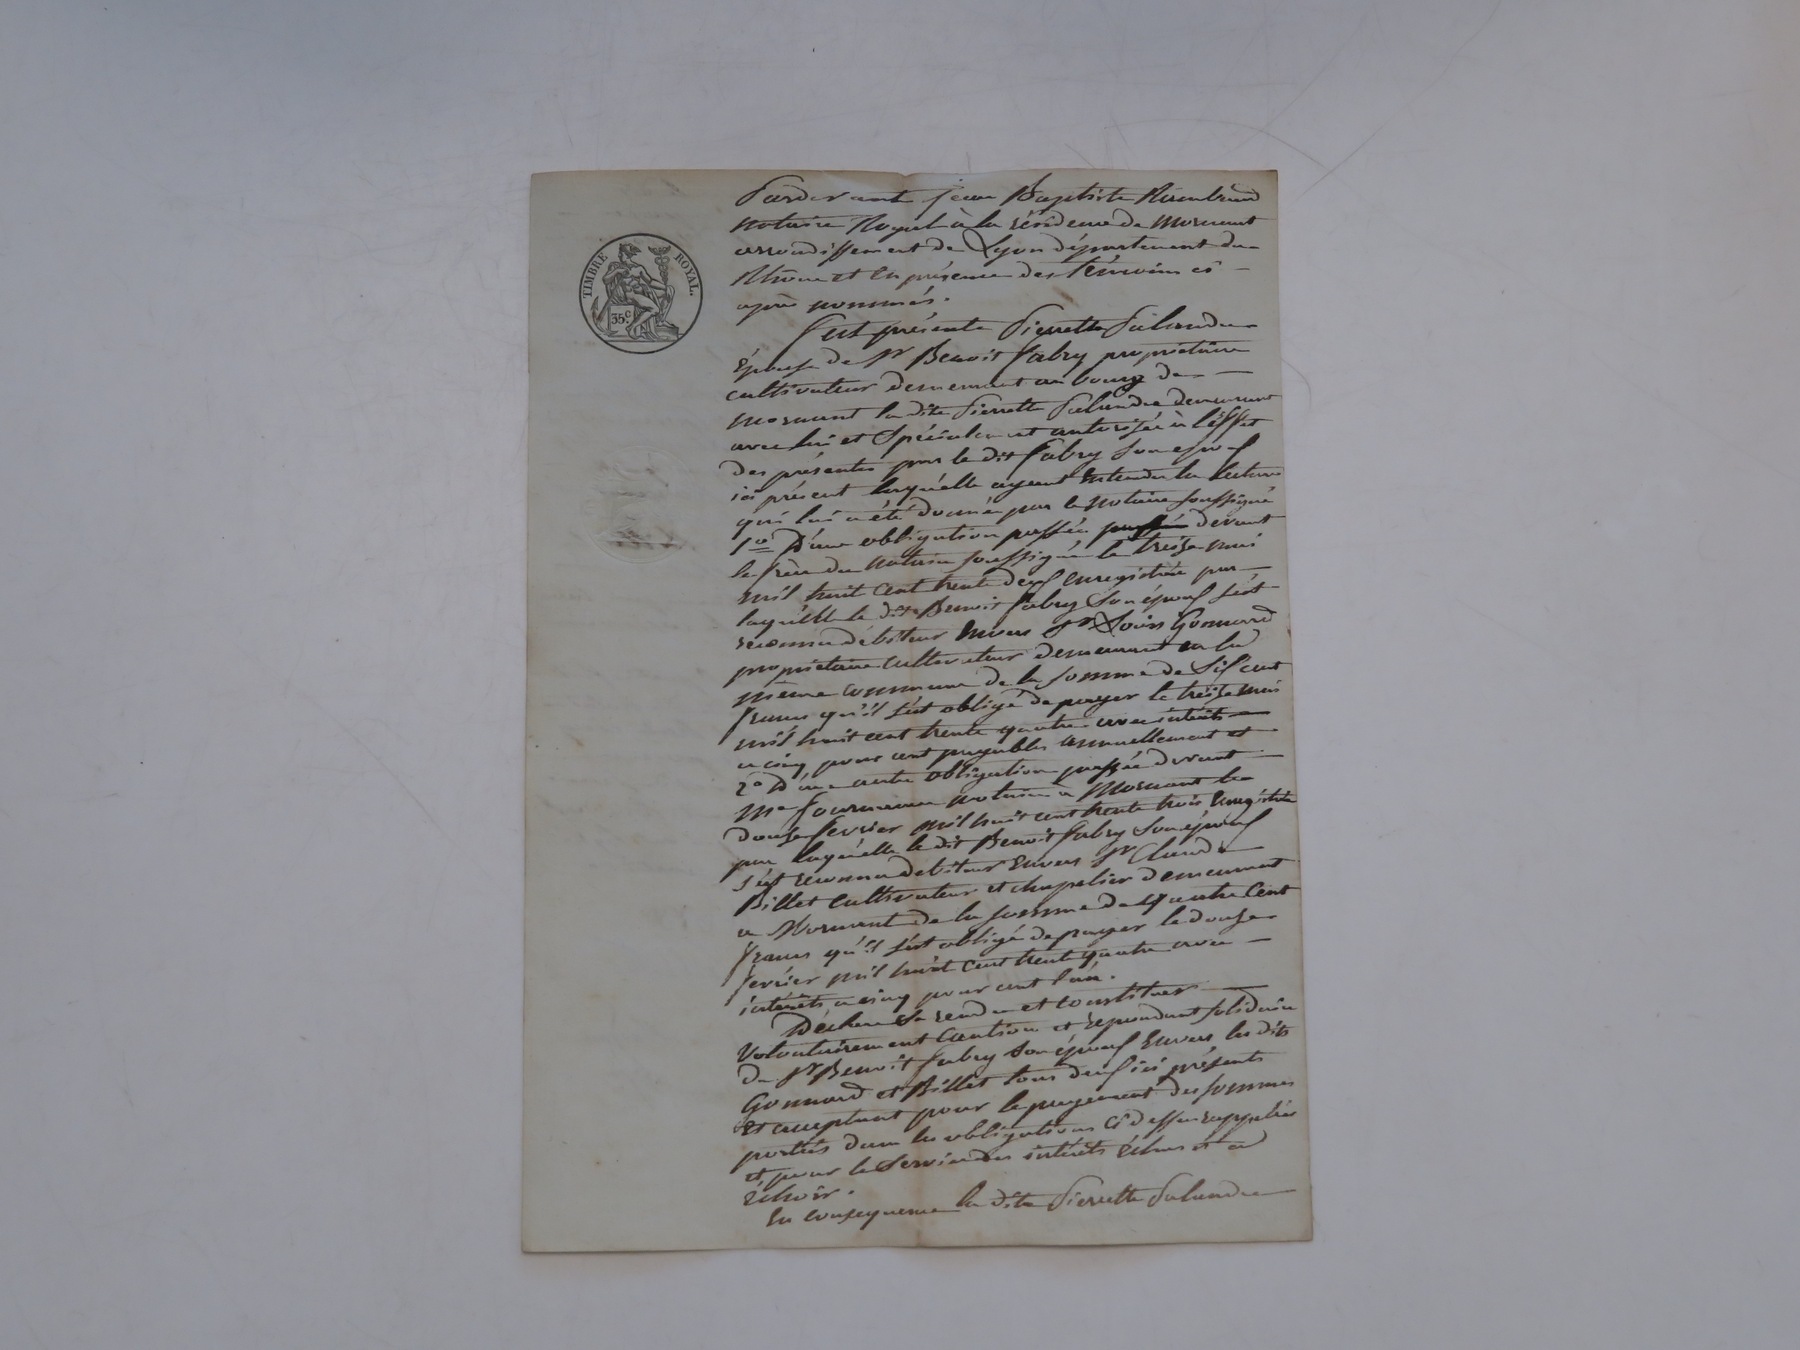 TIMBRE ROYAL.
35c
Pardevant jean Baptiste
notaire Royal à la résidence de Mornant
arrondissement de Lyon département du
Rhône et en présence des témoins ci
après nommés.
fut présente Pierrette Palandre
épouse de Sr Benoit fabry propriétaire
cultivateur demeurant au bourg de
mornant la dite Pierrette Palandre demeurant
avec lui et spécialement autorisée à l'effet
des présentes par le dit fabry son epoux
ici présent laquelle ayant entendu la lecture
qui lui a été donnée par le notaire soussigné
1o D'une obligation passée devant
le frère du notaire soussigné le treize mai
mil huit cent trente deux enregistrée par
laquelle le dit Benoit fabry son époux s'est
reconnu débiteur envers Sr Louis Gonnard
propriétaire cultivateur demeurant en la
même commune de la somme de Six cent
francs qu'il s'est obligé de payer le treize mai
mil huit cent trente quatre avec intérêts
a cinq pour cent payables annuellement et
2o D'une autre obligation passée devant
Me notaire à Mornant le
douze fevrier mil huit cent trente trois Enregistrée
par laquelle le dit Benoit fabry son époux
s'est reconnu debiteur envers Sr Claude
Billet cultivateur et chapelier demeurant
a Mornant de la somme de quatre Cent
francs qu'il s'est obligé de payer le douze
fevrier mil huit cent trente quatre avec
intérêts a cinq pour cent l'an.
Déclare se rendre et constituer
Volontairement Caution et repondant solidaire
de Sr Benoit fabry son époux envers les dits
Gonnard et Billet tous deux ici présents
et acceptant pour le payement des sommes
portées dans les obligations ci dessus rappelées
et pour le service des intérêts échus et a
échoir.
En consequence la dite Pierrette Palandre